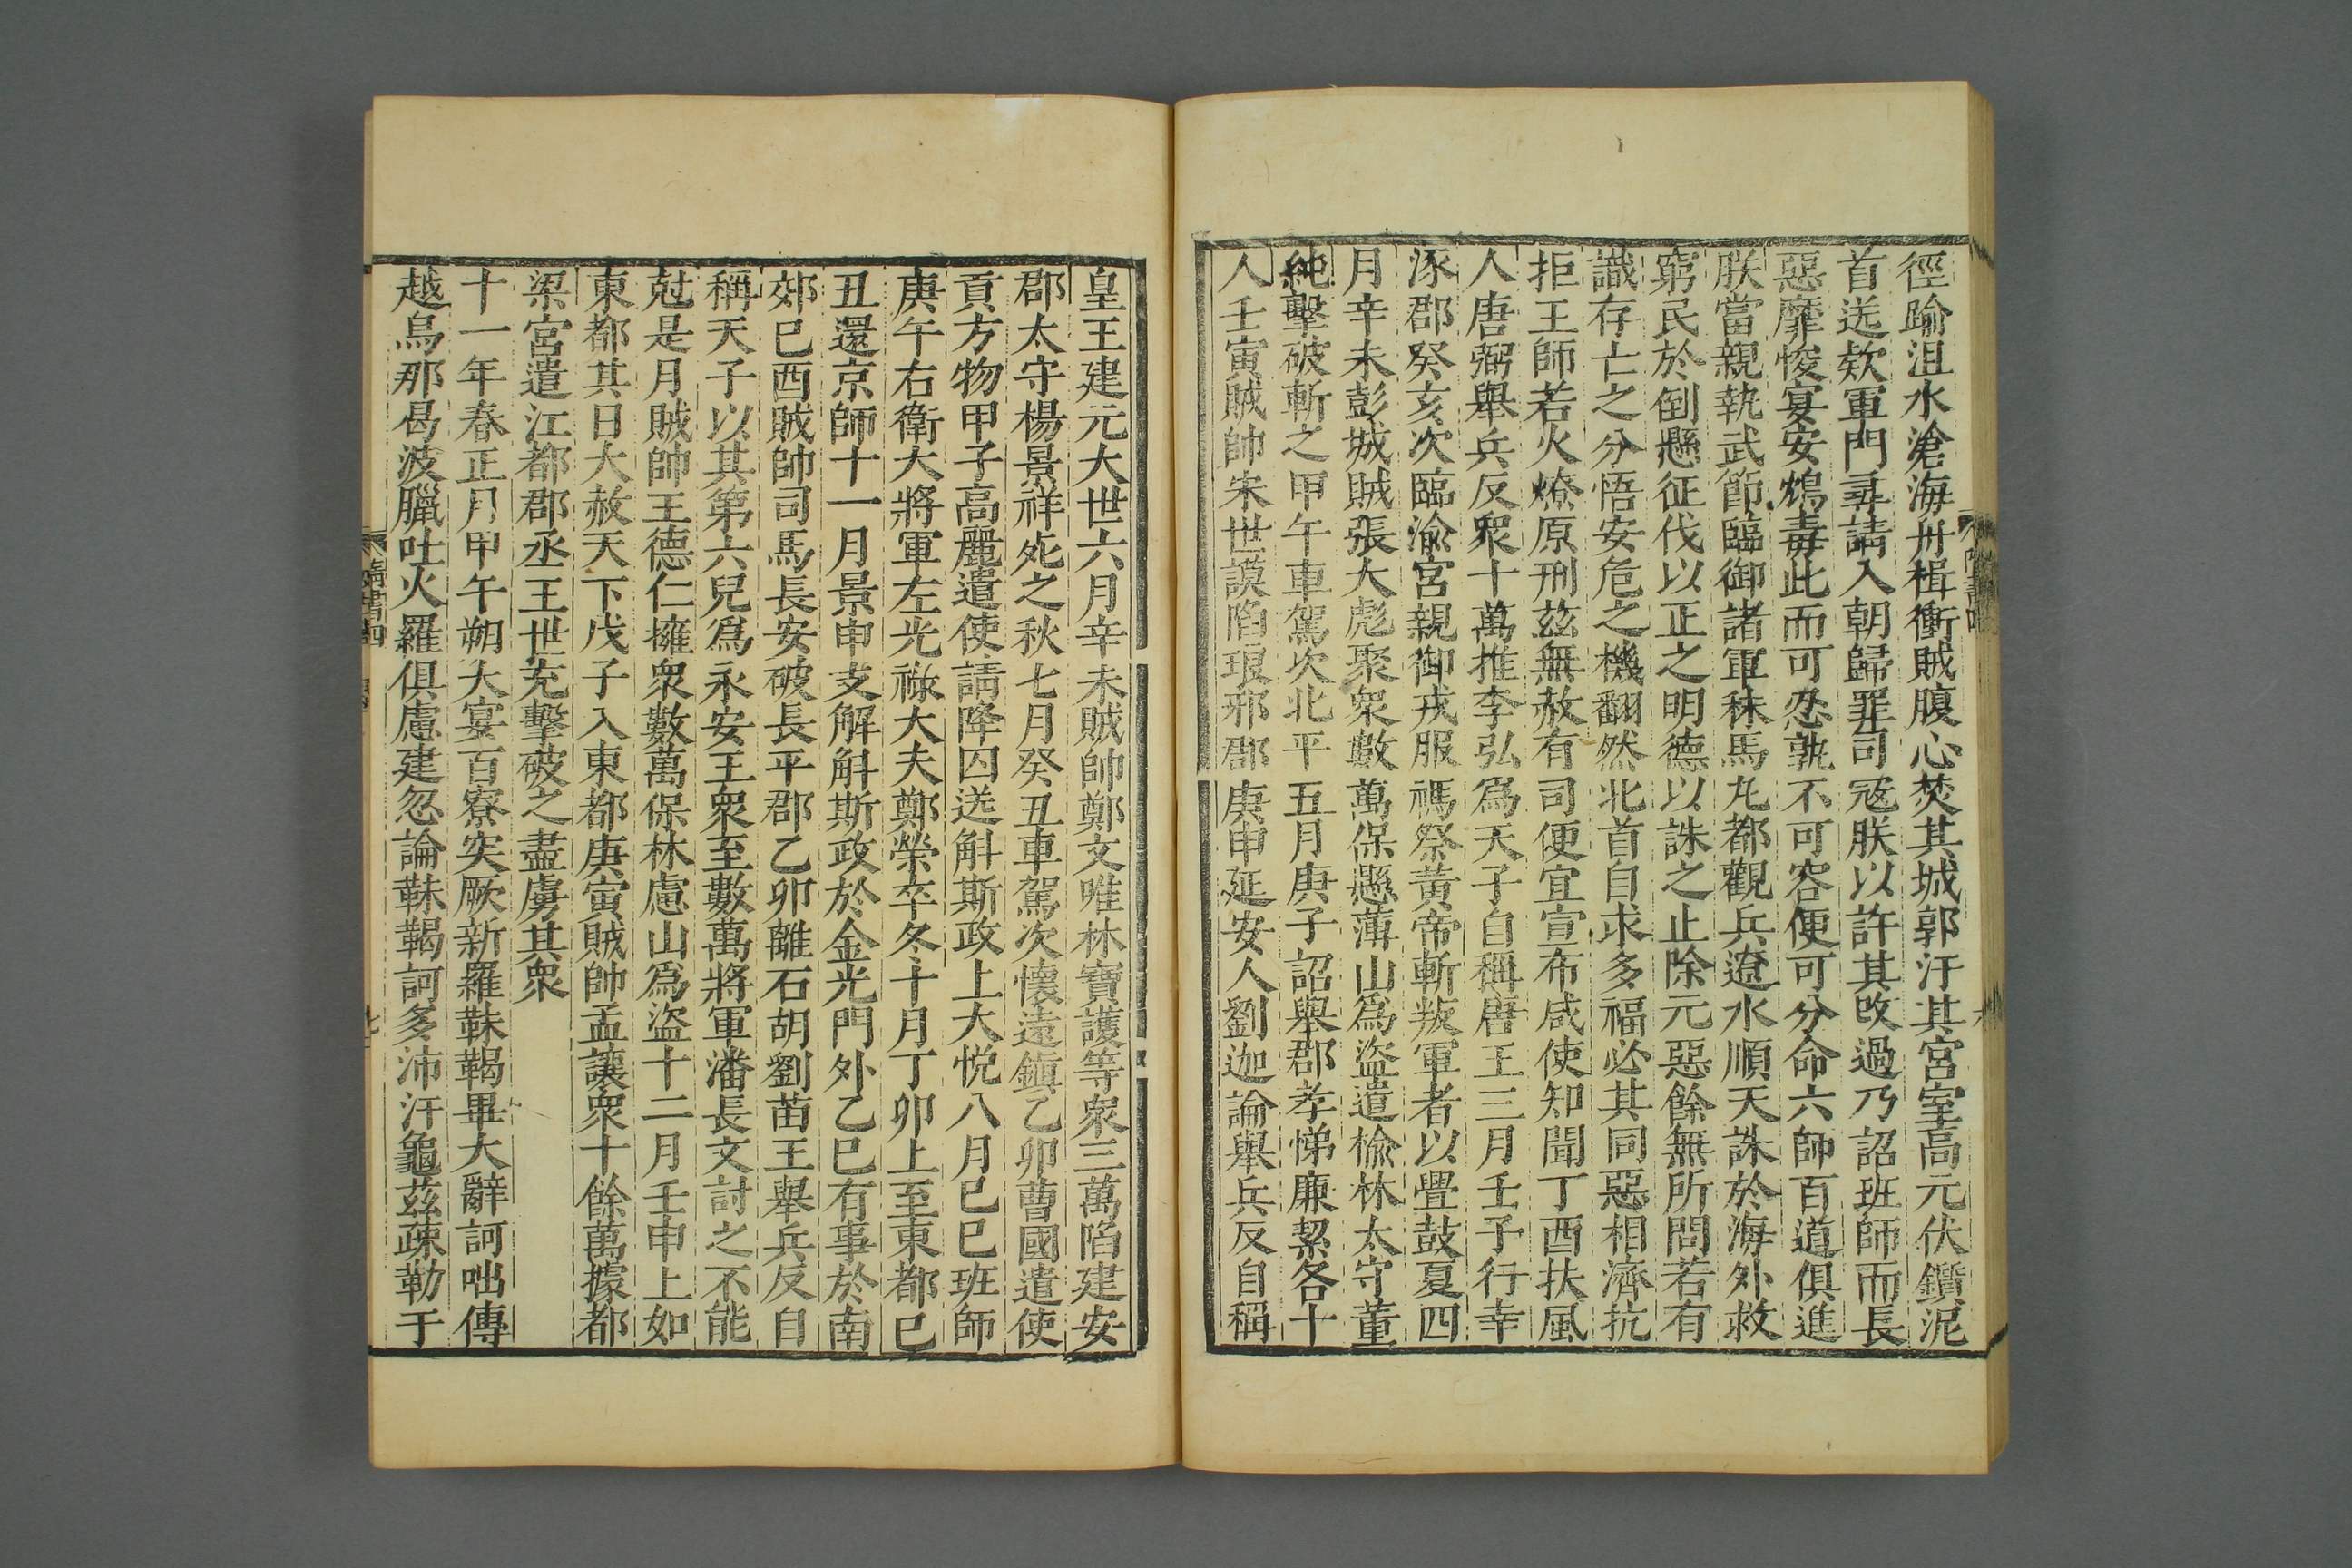 徑踰沮水滄海舟楫衝賊腹心焚其城郭汙其宮室高元伏鑕泥
首送欵軍門尋請入朝歸罪司寇朕以許其改過乃詔班師而長
惡靡悛宴安鴆毒此而可忍孰不可容便可分命六師百道俱進
朕當親執武節臨御諸軍秣馬丸都觀兵遼水順天誅於海外救
窮民於倒懸征伐以正之明德以誅之止除元惡餘無所問若有
識存亡之分悟安危之機翻然北首自求多福必其同惡相濟抗
拒王師若火燎原刑茲無赦有司便宜宣布咸使知聞丁酉扶風
人唐弼舉兵反衆十萬推李弘爲天子自稱唐王三月壬子行幸
涿郡癸亥次臨渝宮親御戎服禡祭黃帝斬叛軍者以舋鼓夏四
月辛未彭城賊張大彪聚衆數萬保懸薄山爲盜遣榆林太守董
純擊破斬之甲午車駕次北平五月庚子詔舉郡孝悌廉絜各十
人壬寅賊帥宋世謨陷琅邪郡庚申延安人劉迦論舉兵反自稱
皇王建元大世六月辛未賊帥鄭文唯林寶護等衆三萬陷建安
郡太守楊景祥死之秋七月癸丑車駕次懷遠鎮乙卯曹國遣使
貢方物甲子高麗遣使請降囚送斛斯政上大悅八月己巳班師
庚午右衛大將軍左光祿大夫鄭榮卒冬十月丁卯上至東都己
丑還京師十一月景申支解斛斯政於金光門外乙巳有事於南
郊已酉賊帥司馬長安破長平郡乙卯離石胡劉苗王舉兵反自
稱天子以其第六兒爲永安王衆至數萬將軍潘長文討之不能
尅是月賊帥王德仁擁衆數萬保林慮山爲盜十二月壬申上如
東都其日大赦天下戊子入東都庚寅賊帥孟讓衆十餘萬據都
梁宮遣江都郡丞王世充擊破之盡虜其衆
十一年春正月甲午朔大宴百寮突厥新羅靺鞨畢大辭訶咄傳
越烏那曷波臘吐火羅俱慮建忽論靺鞨訶多沛汗龜茲疎勒于
隋書四